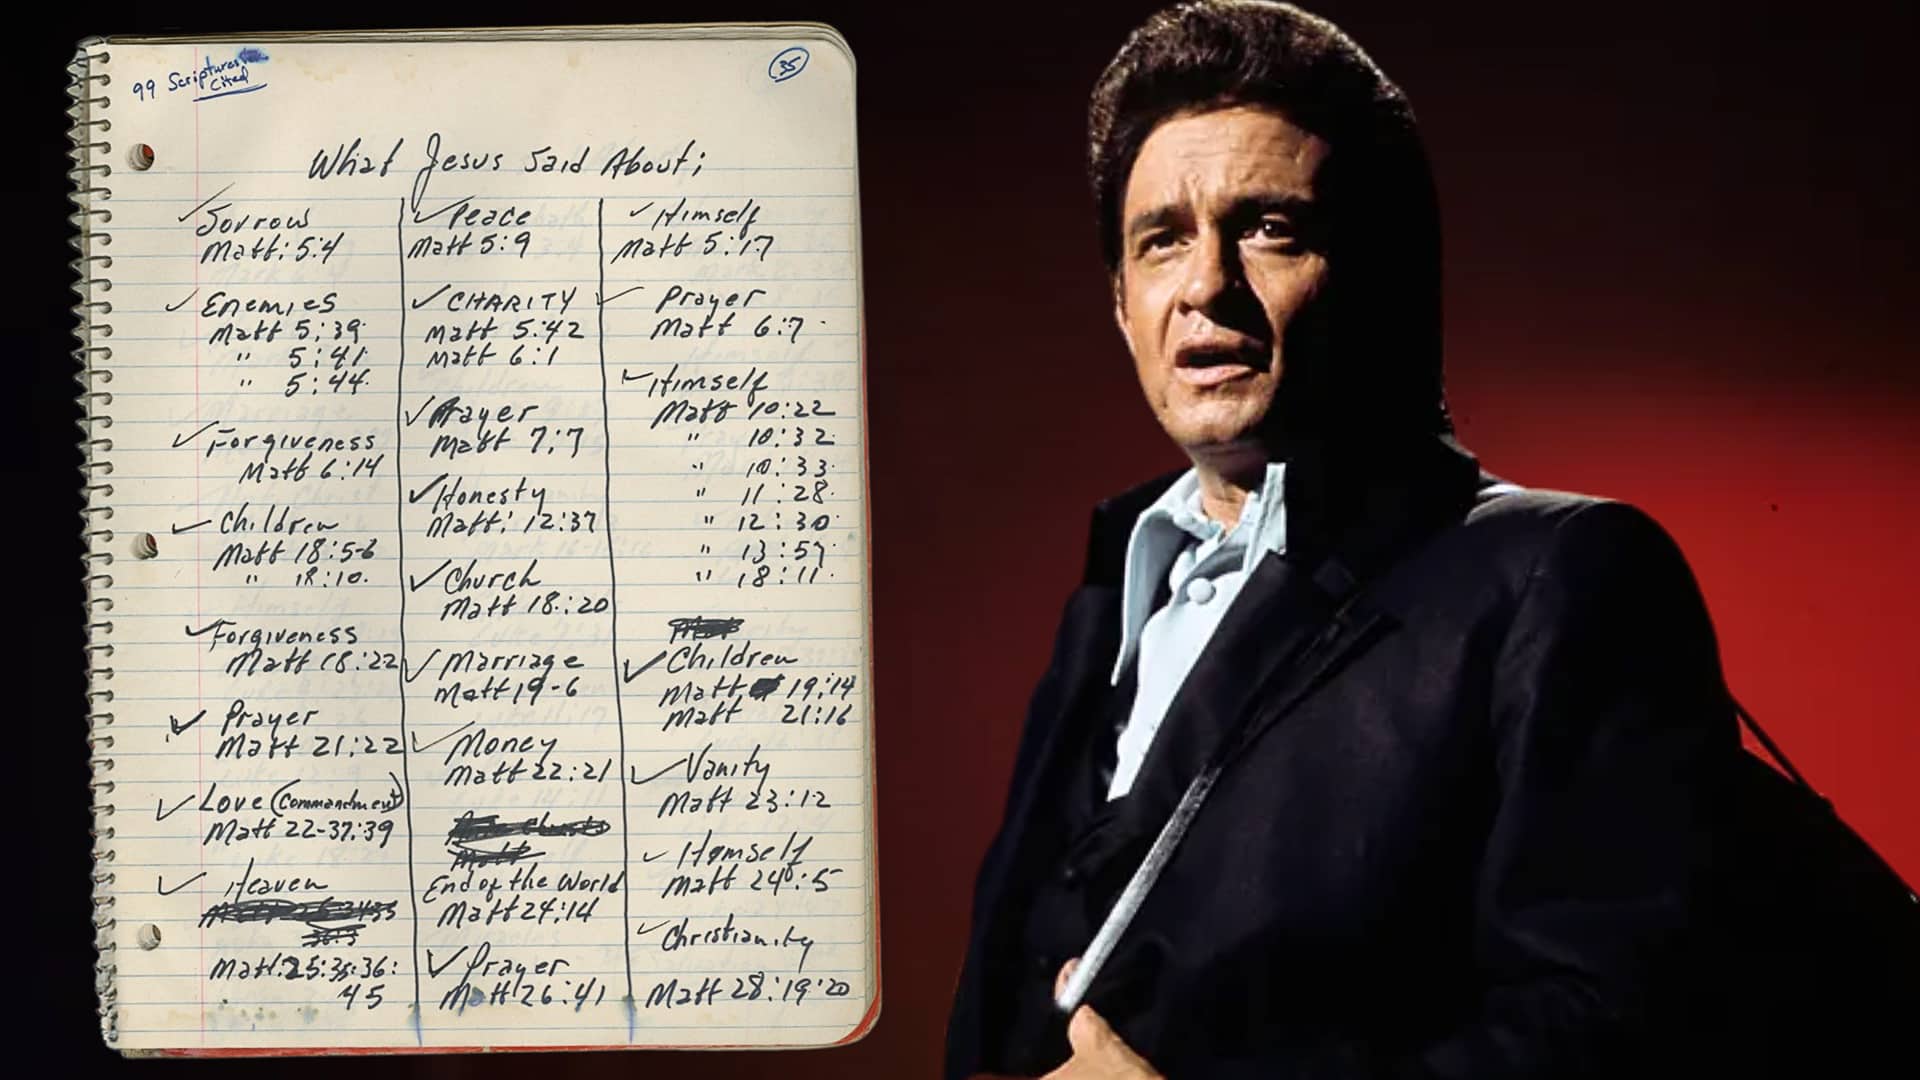 99 Scriptures
Cited
35
What Jesus Said About;
Sorrow
Matt: 5:4
Enemies
Matt 5:39
" 5:41
" 5:44
Forgiveness
Matt 6:14
Children
Matt 18:5-6
" 18:10.
Forgiveness
Matt 18:22
Prayer
Matt 21:22
Love (Commandment)
Matt 22-37:39
Heaven
Matt: 25:35:36:
45
Peace
Matt 5:9
CHARITY
Matt 5:42
Matt 6:1
Prayer
Matt 7:7
Honesty
Matt: 12:37
Church
Matt 18:20
Marriage
Matt 19-6
Money
Matt 22:21
End of the World
Matt 24:14
Prayer
Matt 26:41
Himself
Matt 5:17
Prayer
Matt 6:7
Himself
Matt 10:22
" 10:32
" 10:33
" 11:28
" 12:30
" 13:57
" 18:11
Children
Matt 19:14
Matt 21:16
Vanity
Matt 23:12
Himself
Matt 24:5
Christianity
Matt 28:19:20